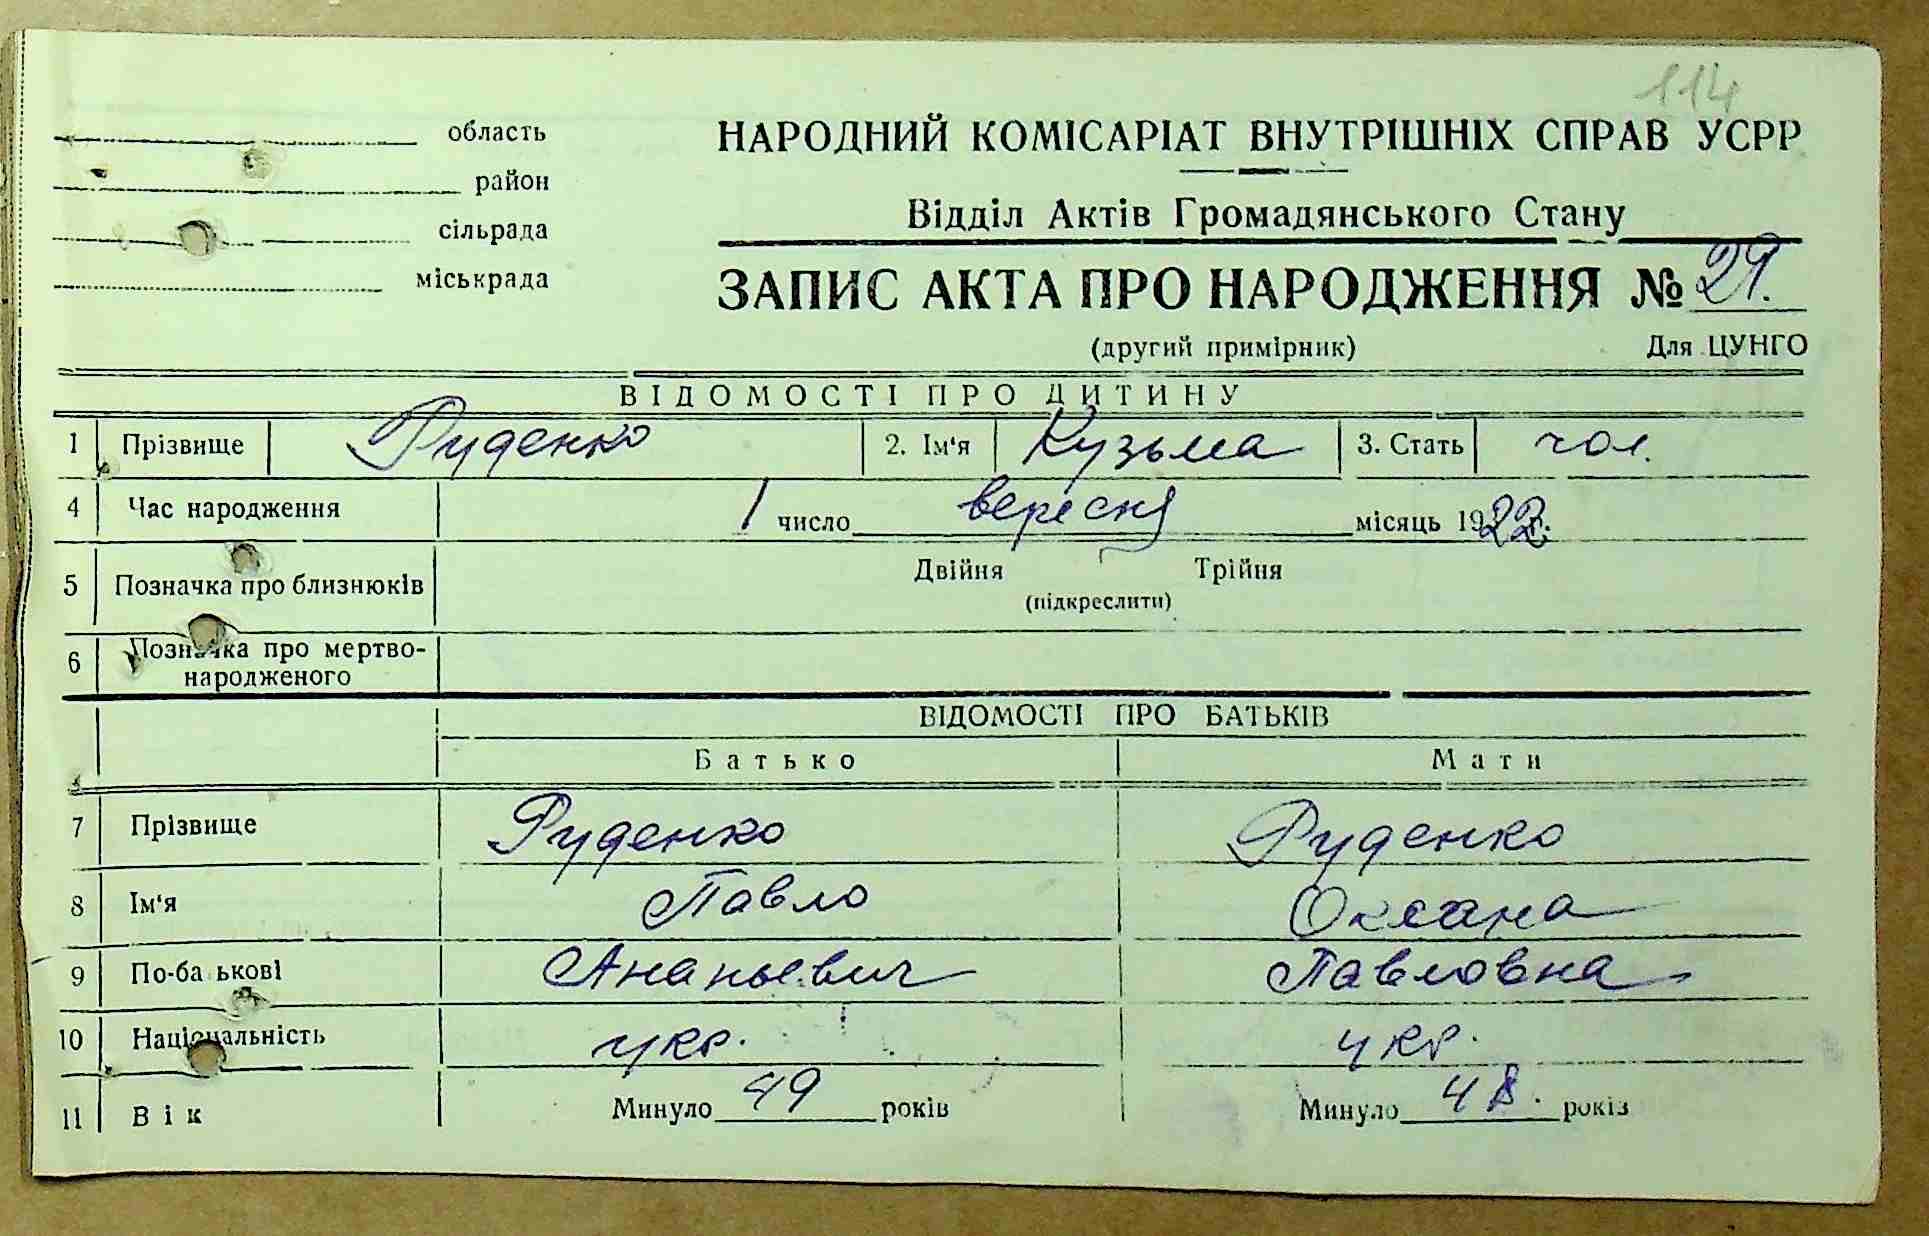 114
область
район
сільрада
міськрада
НАРОДНИЙ КОМІСАРІАТ ВНУТРІШНІХ СПРАВ УСРР
Відділ Актів Громадянського Стану
ЗАПИС АКТА ПРО НАРОДЖЕННЯ № 29.
(другий примірник) Для ЦУНГО
ВІДОМОСТІ ПРО ДИТИНУ
1 Прізвище Руденко 2. Ім'я Кузьма 3. Стать чол.
4 Час народження 1 число вересня місяць 1922.
5 Позначка про близнюків Двійня Трійня
(підкреслити)
6 Позначка про мертво-
народженого
ВІДОМОСТІ ПРО БАТЬКІВ
Батько Мати
7 Прізвище Руденко Руденко
8 Ім'я Павло Оксана
9 По-ба ькові Ананьевич Павловна
10 Національність укр. укр.
11 Вік Минуло 49 років Минуло 48. років